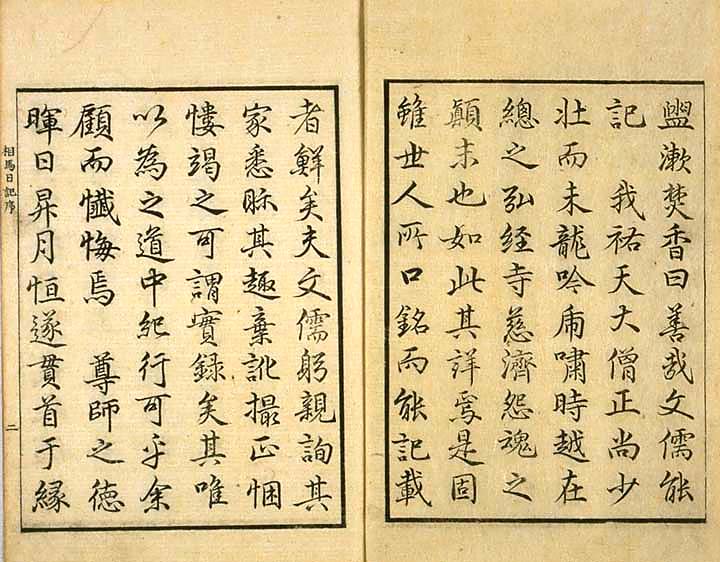 盥漱焚香曰善哉文儒能
記　我祐天大僧正尚少
壮而未龍吟虎嘯時越在
總之弘経寺慈濟怨魂之
顛末也如此其詳焉是固
雖世人所口銘而能記載
者鮮矣夫文儒躬親詢其
家悉眎其趣棄訛撮正悃
悽竭之可謂實録矣其唯
以為之道中紀行可乎余
顧而懺悔焉　尊師之徳
暉日昇月恒遂貫首于縁
相馬日記序
二